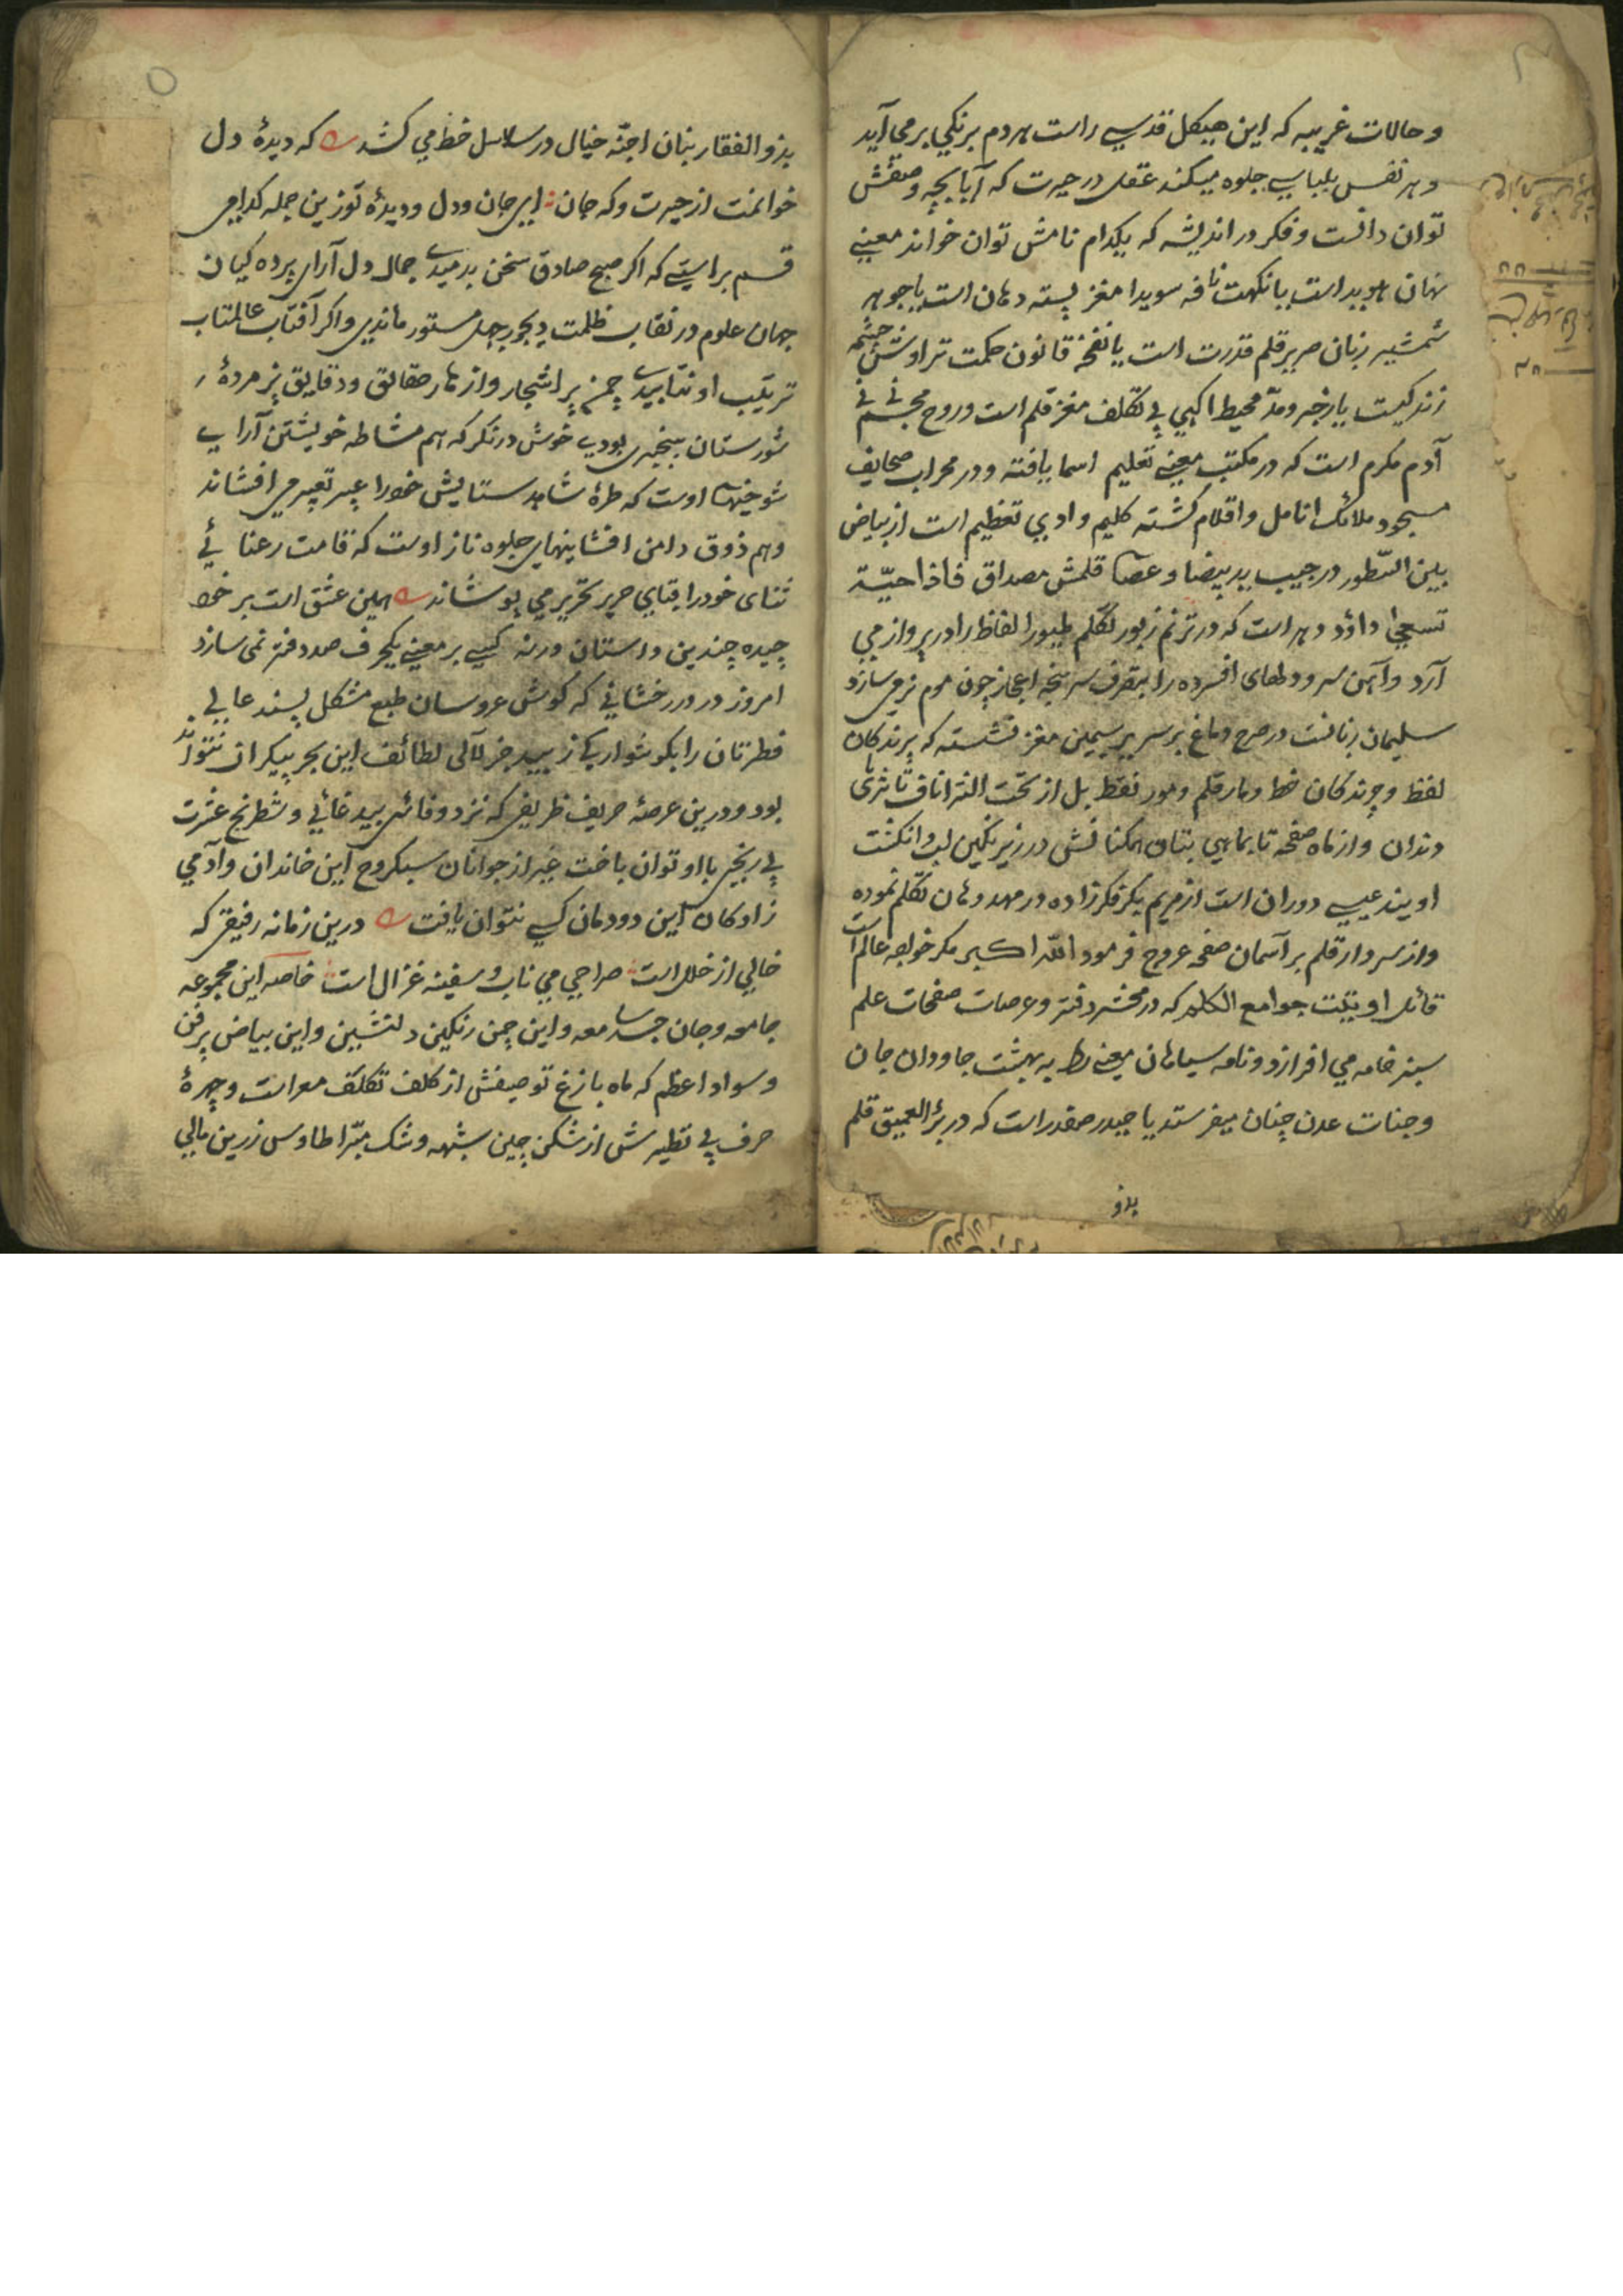 وحالات غریبه که این هیکل قدسی راست هر دم برنکی برمی آید
و هر نفس بلباسی جلوه میکند عقل در حیرت که آیا بچه وصفش
توان دانست و فکر در اندیشه که بکدام نامش توان خواند معنی
نهان هویداست یا نکهت نافه سویدا مغز پسته دهان است یا جوهر
شمشیر زبان صریر قلم قدرت است یا نغمه قانون حکمت تراوش چشمه
زندکیست یا جزر و مد محیط آکهی بی تکلف مغز قلم است و روح مجسم نی نی
آدم مکرم است که در مکتب معنی تعلیم اسما یافته و در محراب صحایف
مسجود ملائک انامل و اقلام کشته کلیم وادی تعظیم است از بیاض
بین السطور در جیب ید بیضا و عصا قلمش مصداق فاذا حیة
تسعی داؤد دهر است که در ترنم زبور تکلم طیور الفاظ را در پرواز می
آرد و آهن سرد دلهای افسرده را بتصرف سرپنجه اعجاز چون موم نرمی سازد
سلیمان زمانست در صرح دماغ بر سریر سیمین مغز نشسته که پرندکان
لفظ و چرندکان خط و مار قلم و مور نقط بل از تحت الثرا ناف تا ثریای
دندان و از ماه صفحه تا بماهی بنان همکنانش در زیر نکین لب و انکشت
اویند عیسی دوران است از مریم بکر فکر زاده در مهد دهان تکلم نموده
و از سر دار قلم بر آسمان صفحه عروج فرمود الله اکبر مکر خواجه عالم است
قائل اوتیت جوامع الکلم که در محشر دفتر و عرصات صفحات علم
سبز خامه می افرازد و نامه سیاهان معنی را به بهشت جاودان جان
و جنات عدن چنان میفرستد یا حیدر صفدر است که در بئر العمیق قلم
بذو
بذو الفقار بنان اجنّه خیال در سلاسل خط می کشد که دیدهٔ دل
خوانمت از حیرت و که جان ای جان و دل و دیدهٔ تو زین جمله کدامی
قسم براستی که اکر صبح صادق سخن بدمیدی جمال دل آرای پرده کیان
جهان علوم در نقاب ظلمت دیجور جهل مستور ماندی و اکر آفتاب عالمتاب
تربیت او نتابیدی چمن پر اشجار و ازهار حقائق و دقایق پژمردهٔ
شورستان بیخبری بودی خوش درنکر که هم مشاطه خویشتن آرایی
شوخیها اوست که طرهٔ شاهد ستایش خود را عبیر تعبیر می افشاند
و هم ذوق دامن افشاینهای جلوه ناز اوست که قامت رعنائی
ثنای خود را قبای حریر تحریر می پوشاند همین عشق است بر خود
چیده چندین داستان ورنه کسی بر معنی یکحرف صد دفتر نمی سازد
امروز در و درخشانی که کوش عروسان طبع مشکل پسند عالی
فطرتان را بکوشوارکی زیبید جز لآلی لطائف این بحر بیکران نتواند
بود و درین عرصه حریف ظریفی که نرد وفائی بیدغائی و شطرنج عشرت
بی رنجی با او توان باخت غیر از جوانان سبکروح این خاندان و آدمی
زادکان این دودمان کسی نتوان یافت درین زمانه رفیقی که
خالی از خلل است صراحی می ناب و سفینه غزل است خاصه این مجموعه
جامعه و جان جسد سامعه و این چمن رنکین دلنشین و این بیاض پرفن
و سواد اعظم که ماه بازغ توصیفش از کلف تکلف معراست و چهرهٔ
حرف بی نظیرش از شکن چین شبهه و شک مبرّا طاوس زرین بالی